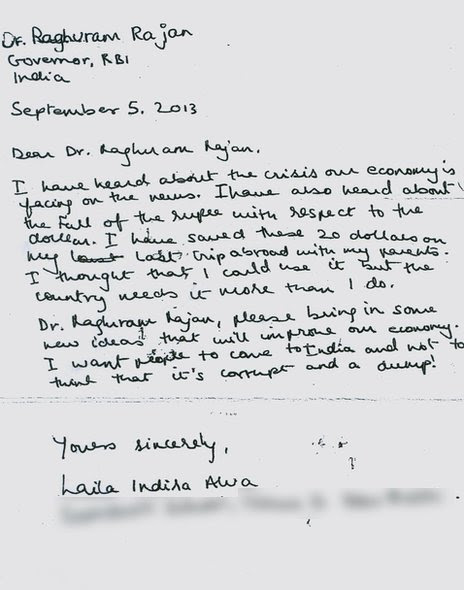 Dr. Raghuram Rajan
Governor, RBI
India
September 5, 2013
Dear Dr. Raghuram Rajan,
I have heard about the crisis our economy is
facing on the news. I have also heard about
the fall of the rupee with respect to the
dollar. I have saved these 20 dollars on
my last trip abroad with my parents.
I thought that I could use it but the
country needs it more than I do.
Dr. Raghuram Rajan, please bring in some
new ideas that will improve our economy.
I want people to come to India and not to
think that it's corrupt and a dump!
Yours sincerely,
Laila Indira Alva